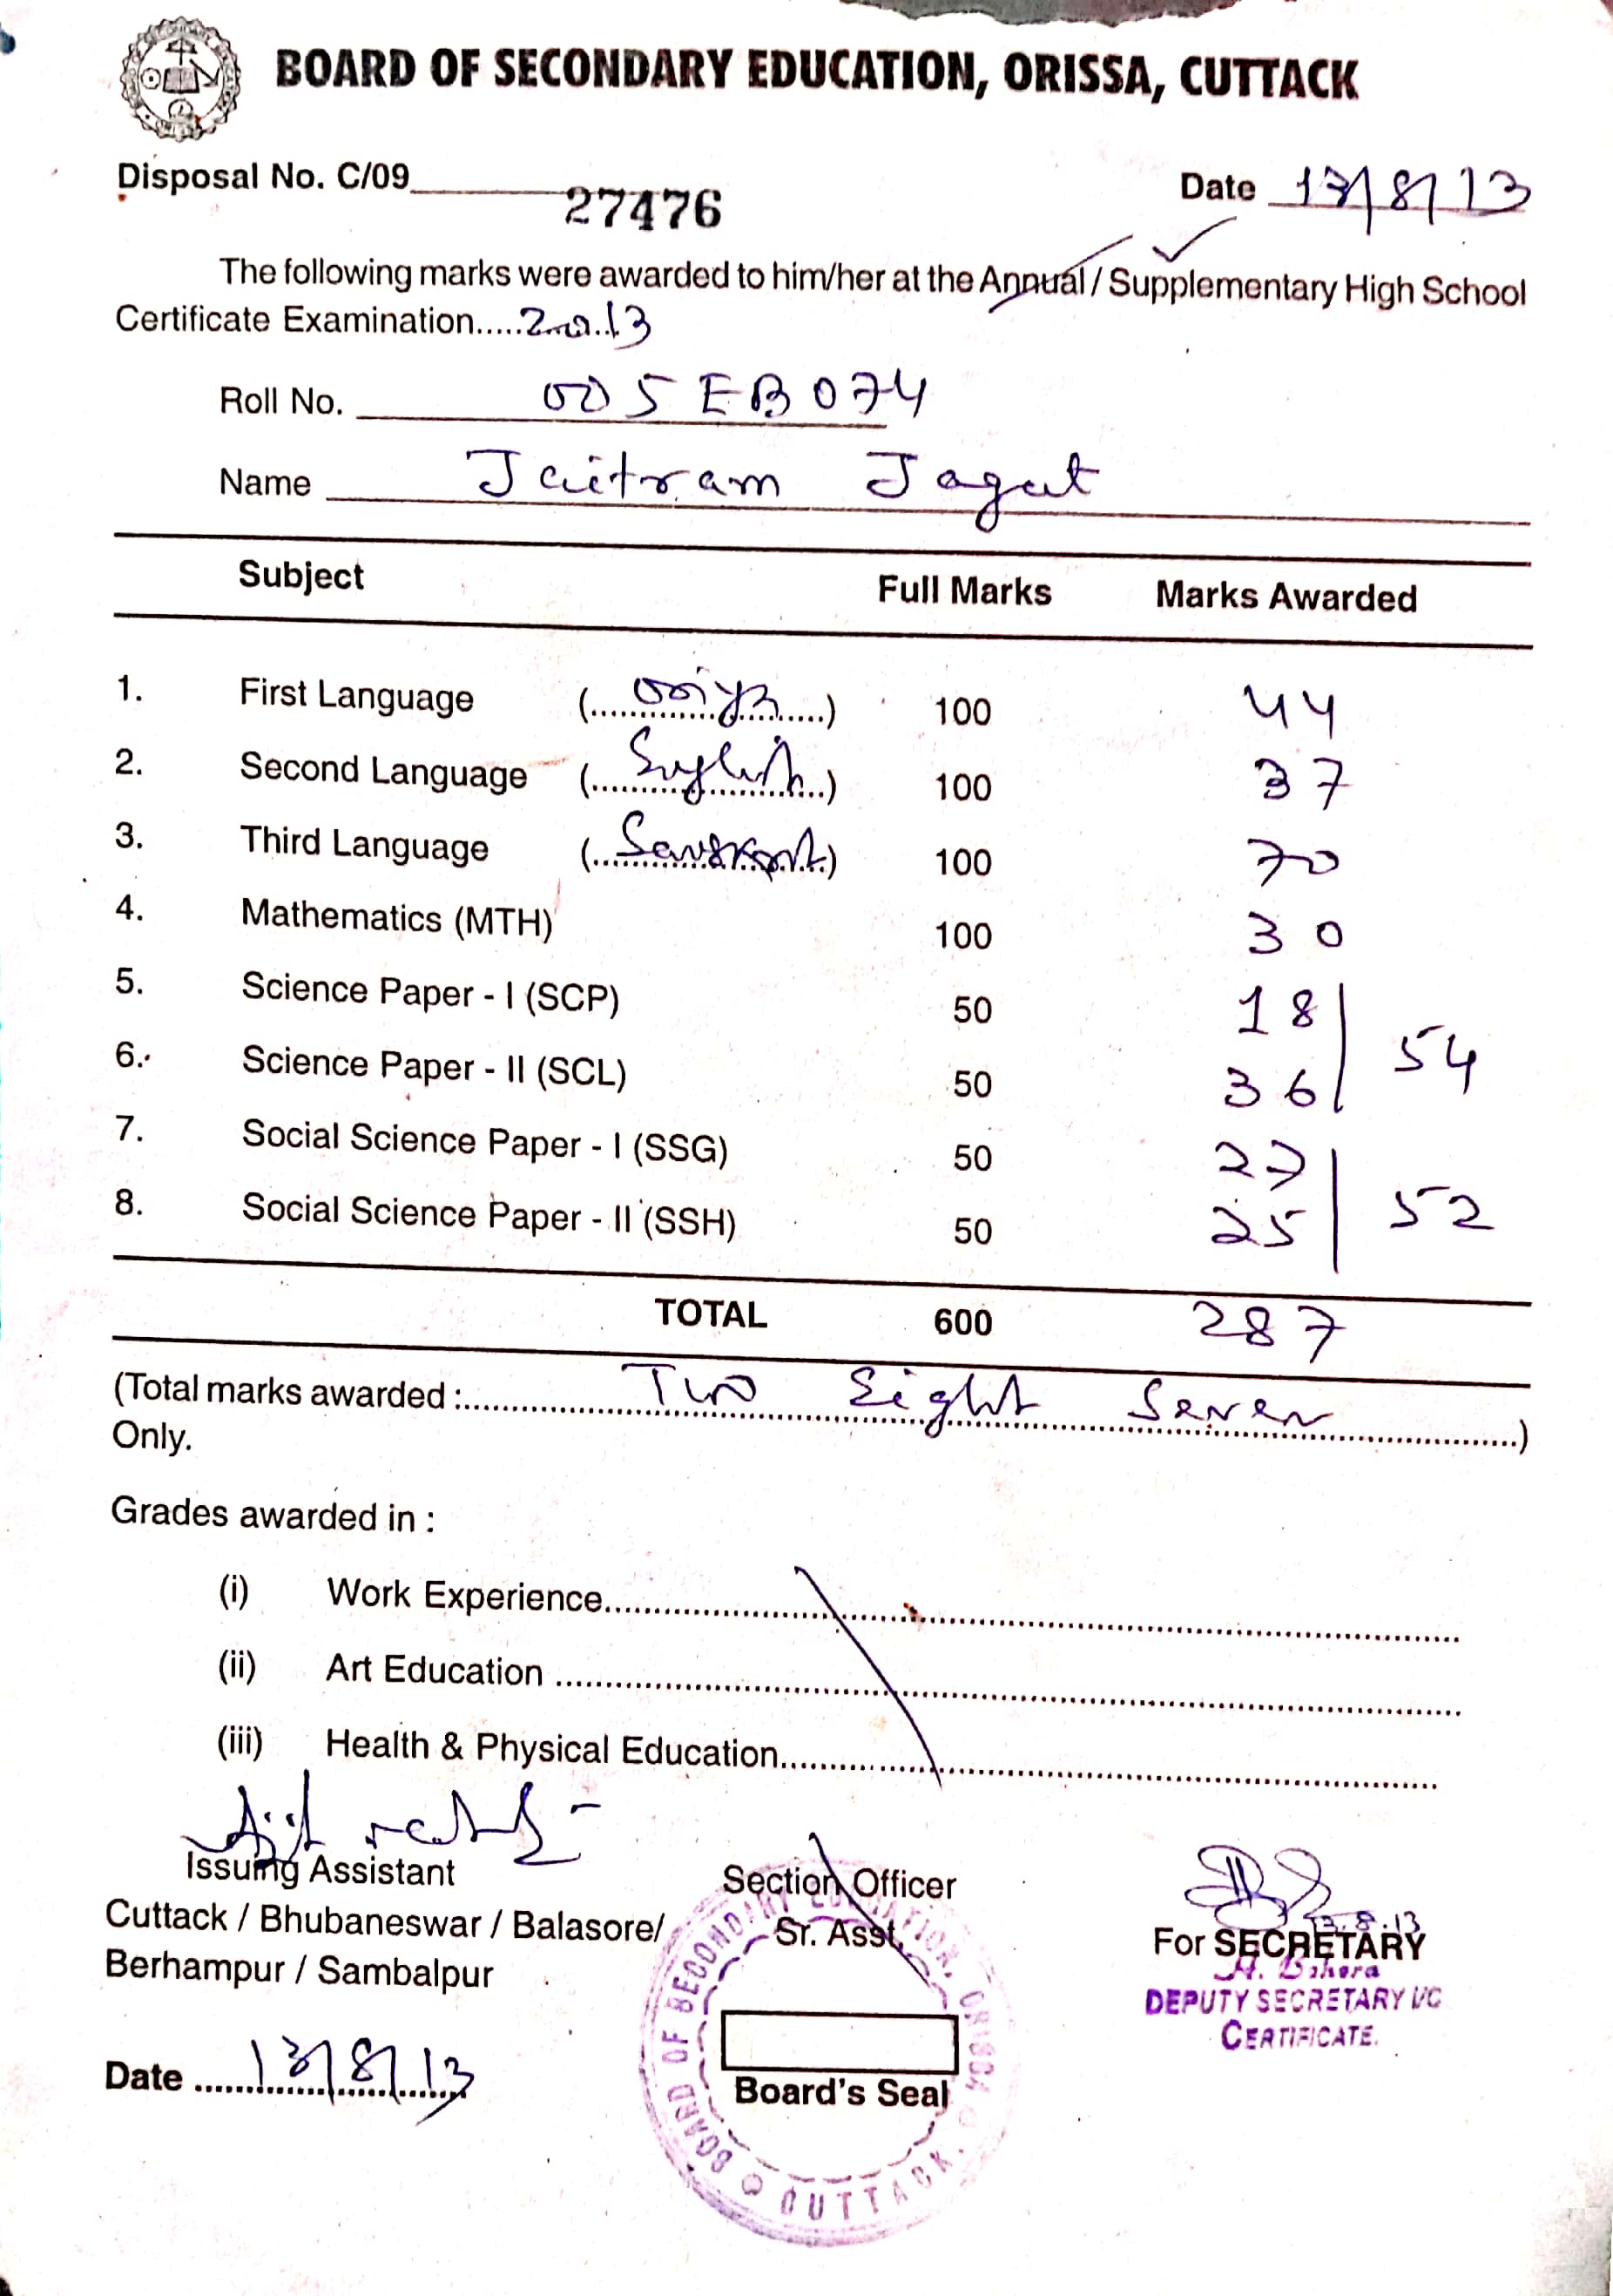 BOARD OF SECONDARY EDUCATION, ORISSA, CUTTACK
Disposal No. C/09 27476 Date 13/8/13
The following marks were awarded to him/her at the Annual / Supplementary High School
Certificate Examination.....2013
Roll No. 005EB074
Name Jaitram Jagat
Subject Full Marks Marks Awarded
1. First Language (Oriya) 100 44
2. Second Language (English) 100 37
3. Third Language (Sanskrit) 100 70
4. Mathematics (MTH) 100 30
5. Science Paper - I (SCP) 50 18
54
6. Science Paper - II (SCL) 50 36
7. Social Science Paper - I (SSG) 50 27
52
8. Social Science Paper - II (SSH) 50 25
TOTAL 600 287
(Total marks awarded : Two Eight Seven)
Only.
Grades awarded in :
(i) Work Experience
(ii) Art Education
(iii) Health & Physical Education
Issuing Assistant Section Officer
Cuttack / Bhubaneswar / Balasore/ Sr. Asst. 13.8.13
For SECRETARY
Berhampur / Sambalpur
DEPUTY SECRETARY I/C
CERTIFICATE.
Date 13/8/13
Board's Seal
BOARD OF SECONDARY EDUCATION, ORISSA, CUTTACK.